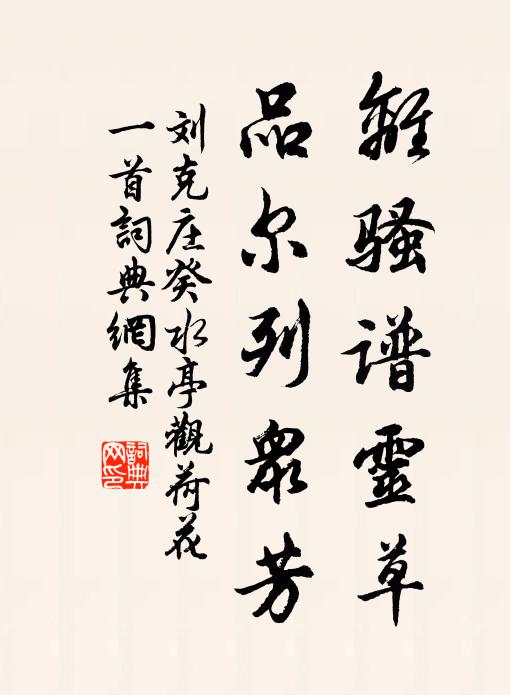 離骚谱靈草
品尔列衆芳
刘克庄癸水亭觀荷花
一首詞典網集
詞典网印